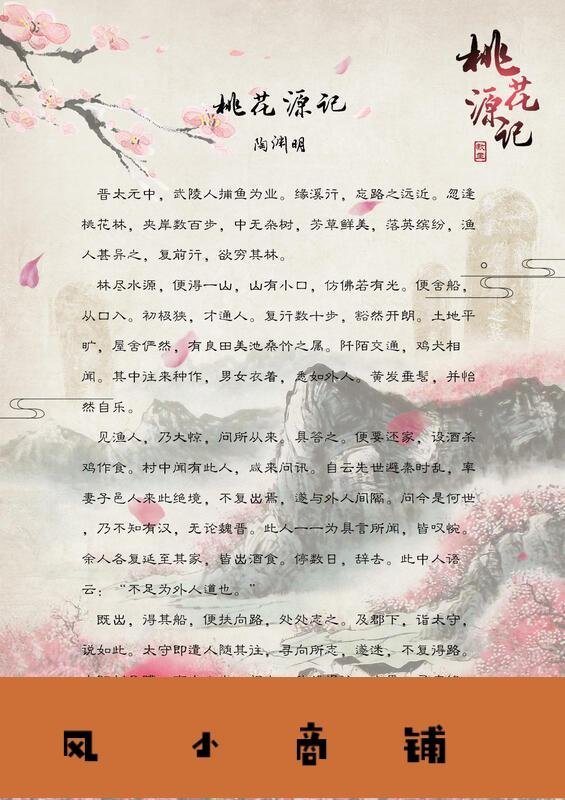 桃花源记
桃花源记
陶渊明
晋太元中，武陵人捕鱼为业。缘溪行，忘路之远近。忽逢
桃花林，夹岸数百步，中无杂树，芳草鲜美，落英缤纷，渔
人甚异之，复前行，欲穷其林。
林尽水源，便得一山，山有小口，仿佛若有光。便舍船，
从口入。初极狭，才通人。复行数十步，豁然开朗。土地平
旷，屋舍俨然，有良田美池桑竹之属。阡陌交通，鸡犬相
闻。其中往来种作，男女衣着，悉如外人。黄发垂髫，并怡
然自乐。
见渔人，乃大惊，问所从来。具答之。便要还家，设酒杀
鸡作食。村中闻有此人，咸来问讯。自云先世避秦时乱，率
妻子邑人来此绝境，不复出焉，遂与外人间隔。问今是何世
，乃不知有汉，无论魏晋。此人一一为具言所闻，皆叹惋。
余人各复延至其家，皆出酒食。停数日，辞去。此中人语
云：“不足为外人道也。”
既出，得其船，便扶向路，处处志之。及郡下，诣太守，
说如此。太守即遣人随其往，寻向所志，遂迷，不复得路。
风小商铺